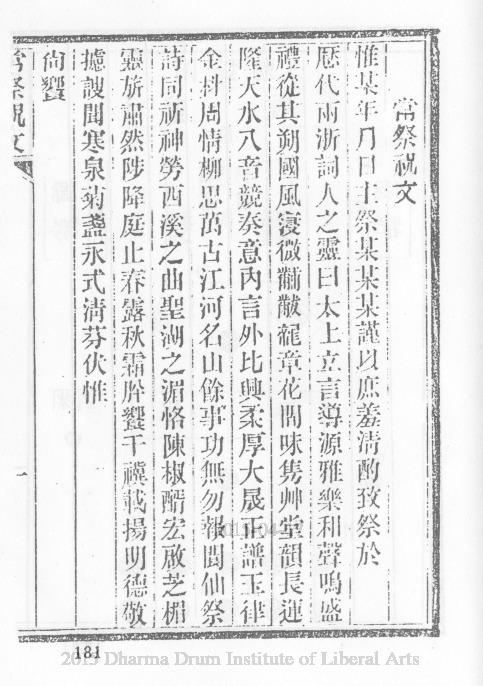 常祭祝文
惟某年月日主祭某某某謹以庶羞清酌致祭於
歷代兩浙詞人之靈曰太上立言導源雅樂和聲鳴盛
禮從其朔國風寖微黼黻龍章花間味雋艸堂韻長運
隆天水八音競奏意內言外比興柔厚大晟正譜玉律
金科周情柳思萬古江河名山餘事功無勿報閬仙祭
詩同祈神勞西溪之曲聖湖之湄恪陳椒醑宏啟芝楣
靈旂肅然陟降庭止春露秋霜肸饗千禩載揚明德敬
攄謏聞寒泉菊盞永式淸芬伏惟
尙饗
常祭祝文
一
181
2015 Dharma Drum Institute of Liberal Arts